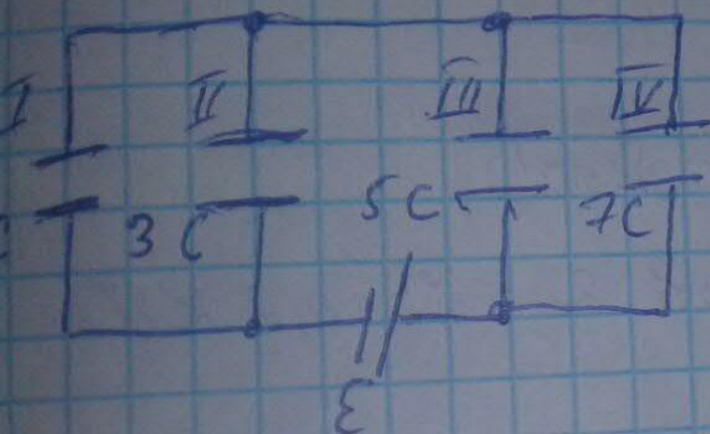 I II III IV
C 3C 5C 7C
ε